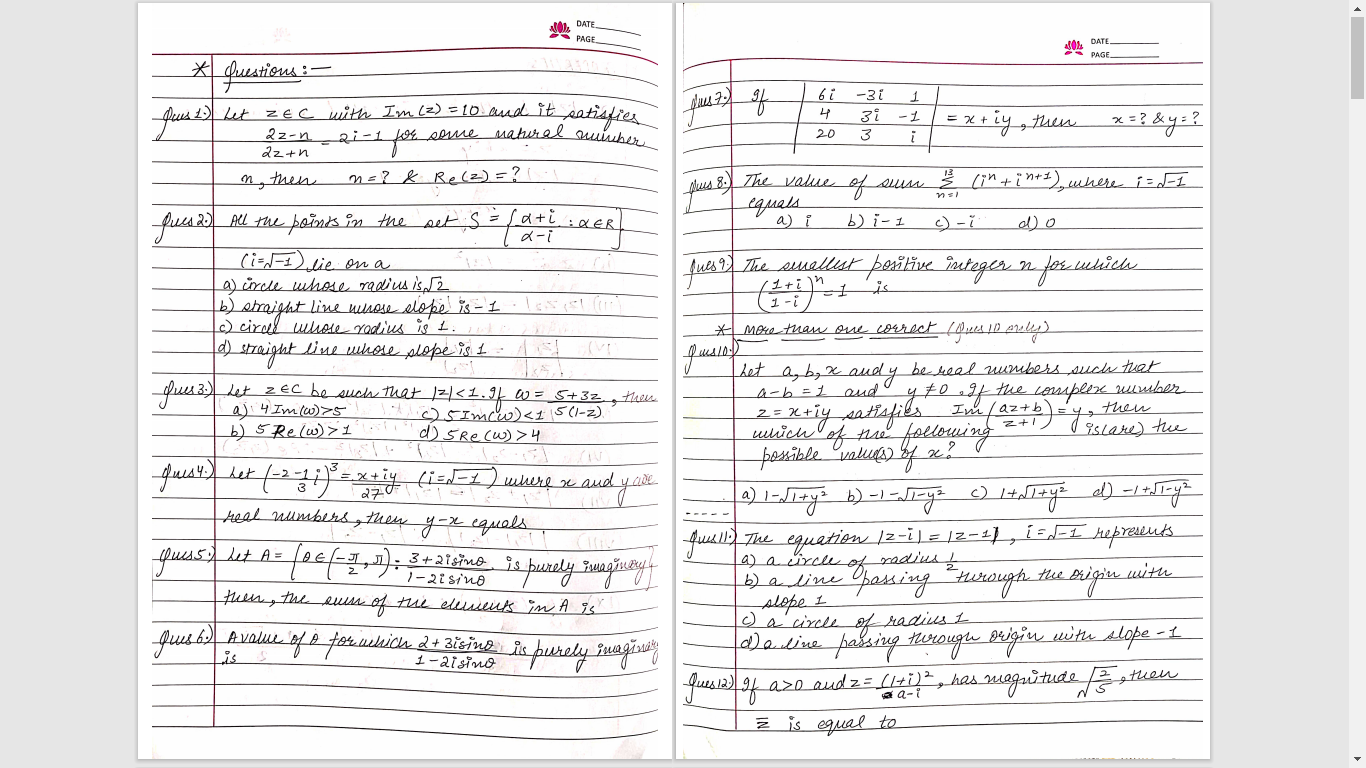 DATE
PAGE
* Questions :—
Ques 1:) Let z ∈ C with Im(z) = 10 and it satisfies
2z-n / 2z+n = 2i-1 for some natural number
n, then n = ? & Re(z) = ?
Ques 2:) All the points in the set S = {α+i / α-i : α ∈ R}
(i=√-1) lie on a
a) circle whose radius is √2
b) straight line whose slope is -1
c) circle whose radius is 1.
d) straight line whose slope is 1
Ques 3:) Let z ∈ C be such that |z|<1. If ω = 5+3z / 5(1-z), then
a) 4 Im(ω)>5 c) 5 Im(ω)<1
b) 5 Re(ω)>1 d) 5 Re(ω)>4
Ques 4:) Let (-2-1/3 i)³ = x+iy / 27 (i=√-1) where x and y are
real numbers, then y-x equals
Ques 5:) Let A = {θ ∈ (-π/2, π) : 3+2isinθ / 1-2isinθ is purely imaginary}
then, the sum of the elements in A is
Ques 6:) A value of θ for which 2+3isinθ / 1-2isinθ is purely imaginary
is
DATE
PAGE
Ques 7:) If | 6i -3i 1 |
| 4 3i -1 | = x+iy, then x=? & y=?
| 20 3 i |
Ques 8:) The value of sum 13 Σ n=1 (iⁿ + iⁿ⁺¹), where i=√-1
equals
a) i b) i-1 c) -i d) 0
Ques 9:) The smallest positive integer n for which
(1+i / 1-i)ⁿ = 1 is
* more than one correct (Ques 10 only)
Ques 10:)
Let a, b, x and y be real numbers such that
a-b = 1 and y ≠ 0. If the complex number
z = x+iy satisfies Im(az+b / z+1) = y, then
which of the following is(are) the
possible value(s) of x?
a) 1-√1+y² b) -1-√1-y² c) 1+√1+y² d) -1+√1-y²
Ques 11:) The equation |z-i| = |z-1|, i=√-1 represents
a) a circle of radius 1/2
b) a line passing through the origin with
slope 1
c) a circle of radius 1
d) a line passing through origin with slope -1
Ques 12:) If a>0 and z = (1+i)² / a-i, has magnitude √2/5, then
z̄ is equal to